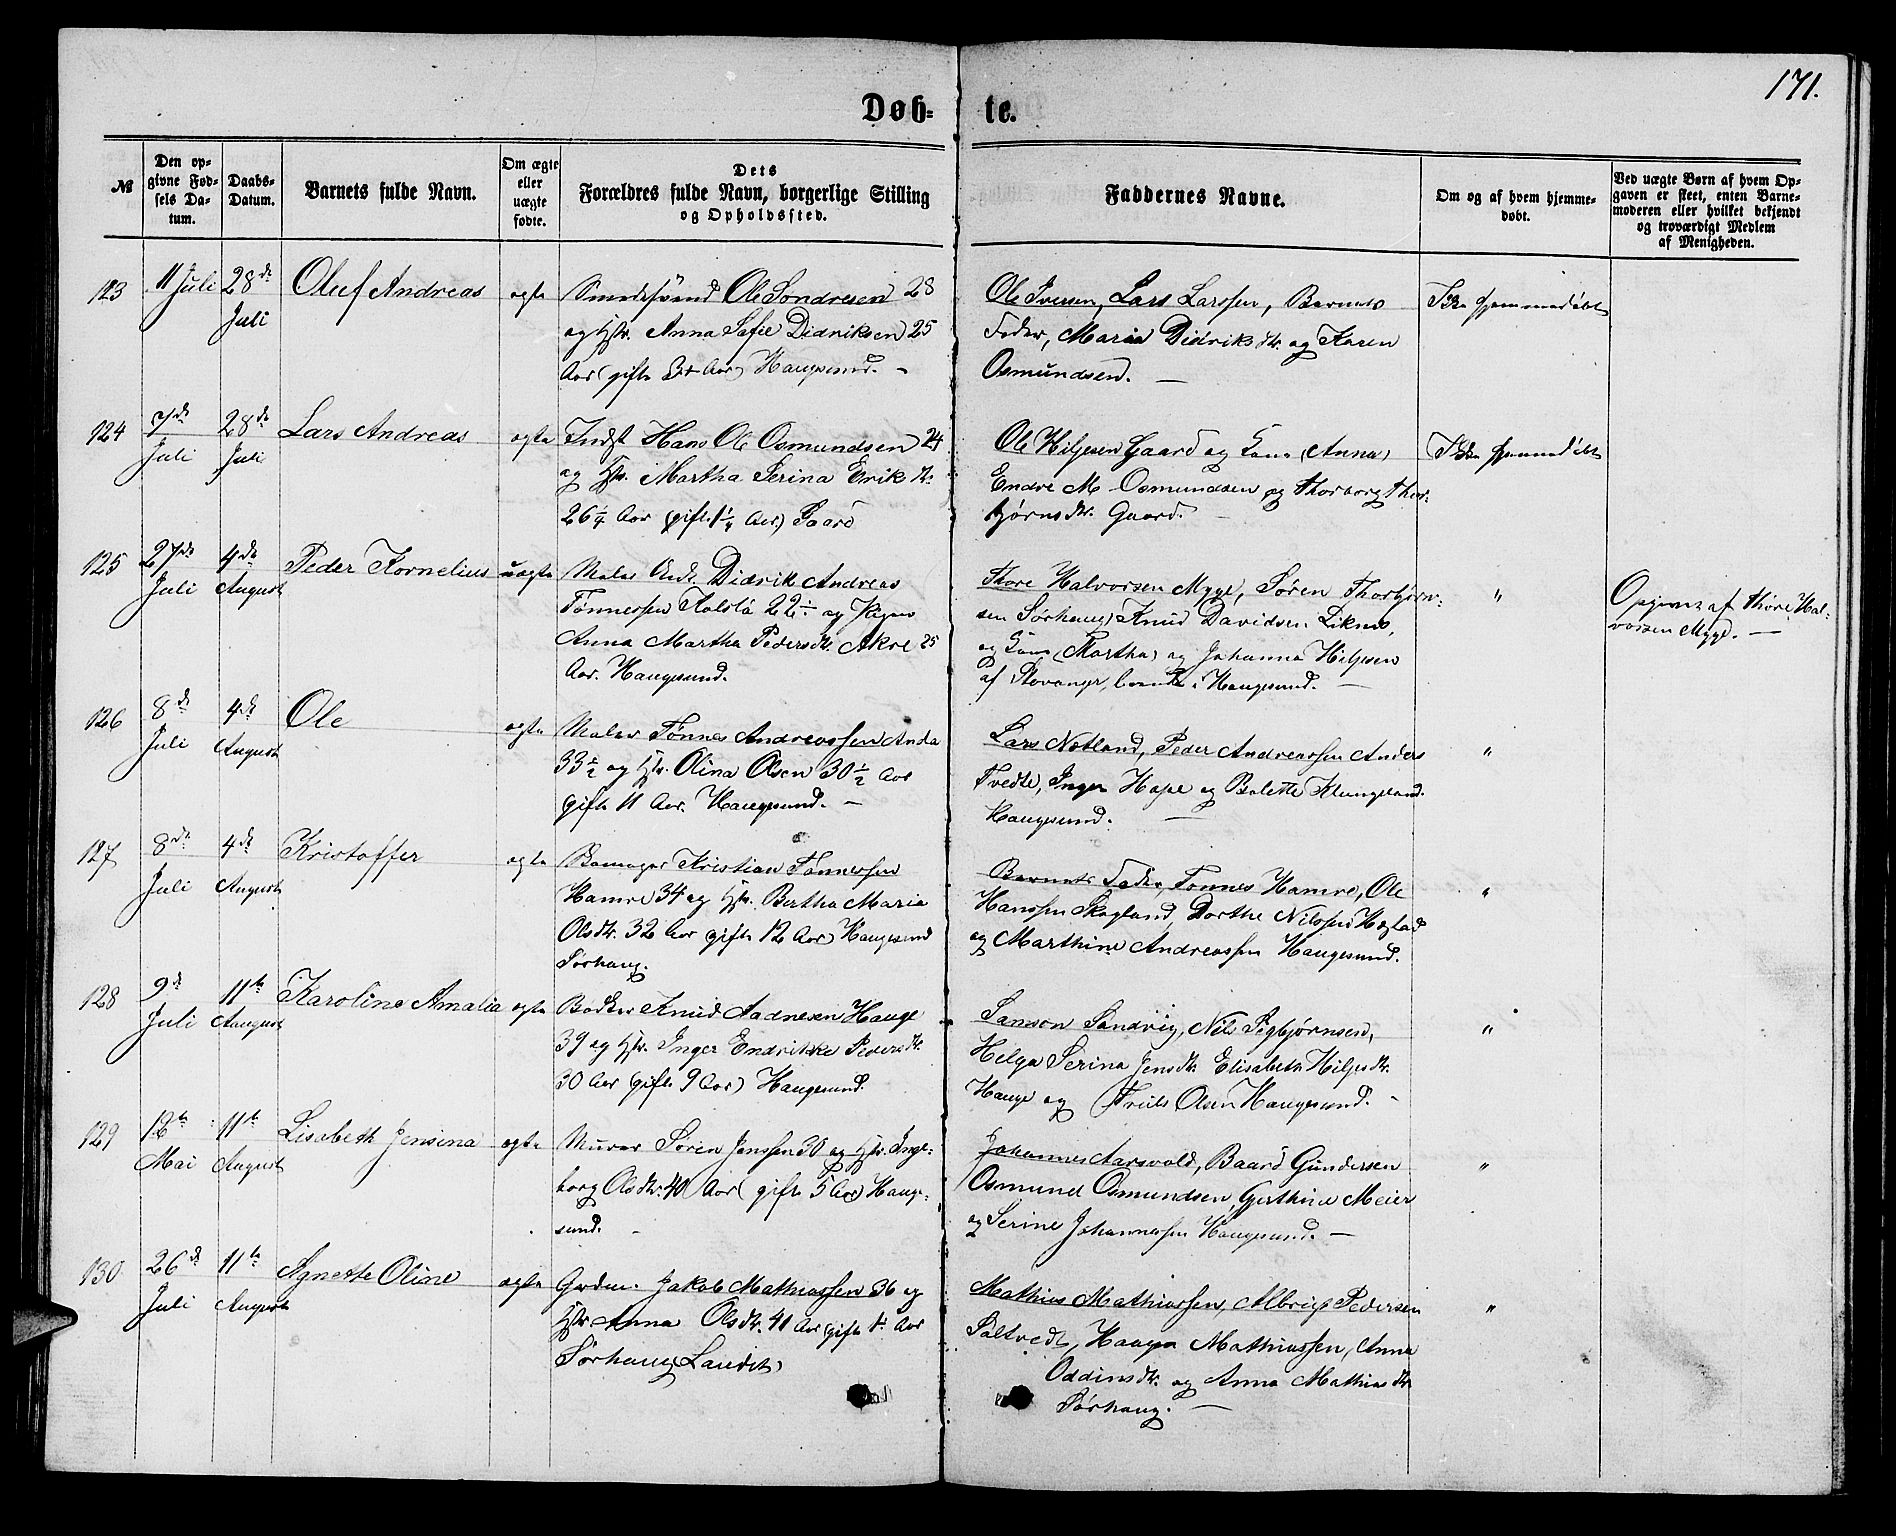 171.
Døb- te.
№
Den op-
givne Fød-
sels Da-
tum.
Daabs-
Datum.
Barnets fulde Navn.
Om ægte
eller
uægte
fødte.
Dets
Forældres fulde Navn, borgerlige Stilling
og Opholdssted.
Faddernes Navne.
Om og af hvem hjemme-
døbt.
Ved uægte Børn af hvem Op-
gaven er skeet, enten Barne-
moderen eller hvilket bekjendt
og troværdigt Medlem
af Menigheden.
123
11 Juli
28de
Juli
Oluf Andreas
ægte
Smedesvend Ole Sondresen 28
og Hstr. Anna Sofie Didriksen 25
Aar (gifte Aar) Haugesund. –
Ole Iversen, Lars Larssen, Barnets
Fader, Maria Didriksdtr. og Karen
Osmundsen. —
Ikke hjemmedøbt
124
7de
Juli
28de
Juli
Lars Andreas
ægte
Indst Hans Ole Osmundsen 24
og Hstr. Martha Serina Eriksdtr.
26 1/4 Aar (gift 1 1/4 Aar) Gaard
Ole Hiljesen Gaard og Kone (Anna)
Endre M. Osmundsen og Thorborg Thor-
bjørnsdtr. Gaard. –
Ikke hjemmedøbt
125
27de
Juli
4de
August
Peder Kornelius
uægte
Maler Didrik Andreas
Tønnessen 22 1/2 og Pigen
Anna Martha Pedersdtr. Akre 25
Aar. Haugesund.
Thore Halvorsen Myge, Søren Thorbjørn-
sen Sørhaug, Knud Davidsen
og Kone (Martha) og Johanna Hiljesen
af Stavanger, boende i Haugesund. —
"
Opgivet af Thore Hal-
vorsen Myge. —
126
8de
Juli
4de
August
Ole
ægte
Maler Tønnes Andreassen Anda
33 1/2 og Hstr. Olina Olsen 30 1/2 Aar
gifte 11 Aar. Haugesund. —
Lars Notland, Peder Andreassen Anders
Tvedte, Inger Hope og Bolette Klungeland.
Haugesund. —
"
127
8de
Juli
4de
August
Kristoffer
ægte
Kristian Tønnessen
Hamre 34 og Hstr. Bertha Maria
Olsdtr. 32 Aar gifte 12 Aar) Haugesund
Sørhaug.
Barnets Fader, Tønnes Hamre, Ole
Hanssen Skogland, Dorthe Nilssen
og Marthine Andreassen Haugesund.
"
128
9de
Juli
11te
August
Karoline Amalia
ægte
Bødker Knud Aadnesen Hauge
39 og Hstr. Inger Endrikke Pedersdtr.
30 Aar (gifte 9 Aar) Haugesund.
Samson Sandvig, Nils Sigbjørnsen,
Helga Serina Jensdtr. Elisabeth Hiljesdtr.
Hauge og Olsen Haugesund. –
"
129
12te
Mai
11te
August
Lisabeth Jensina
ægte
Murer Søren Jenssen 30 og Hstr. Inge-
borg Olsdtr. 40 Aar (gifte 5 Aar) Hauge-
sund. –
Johannes Aarsvold, Baard Gundersen
Osmund Osmundsen, Gerthine Meier
og Serine Johannessen Haugesund. —
"
130
26de
Juli
11te
August
Agnethe Oline
ægte
Jakob Mathiassen 36 og
Hstr. Anna Olsdtr. 41 Aar (gifte Aar
Sørhaug Landet)
Mathias Mathiassen, Albrigt Pedersen
Saltvedt, Haagen Mathiassen, Anna
Oddinsdtr. og Anna Mathiasdtr.
Sørhaug. —
"